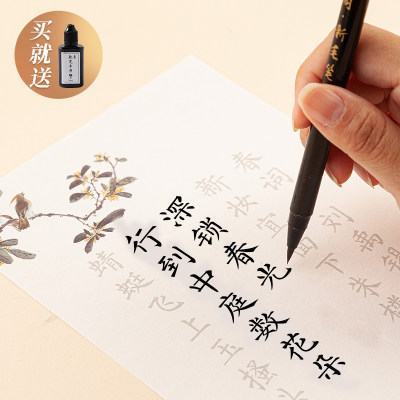 买就送
春词 刘禹锡
新妆宜面下朱楼
深锁春光
行到中庭数花朵
蜻蜓飞上玉搔